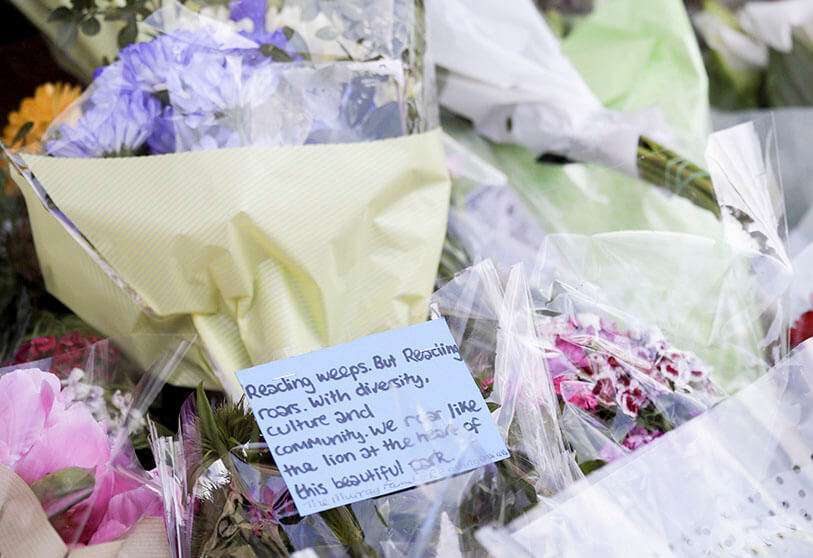 Reading weeps. But Reading
roars. With diversity,
culture and
community. We roar like
the lion at the heart of
this beautiful park
The Murray